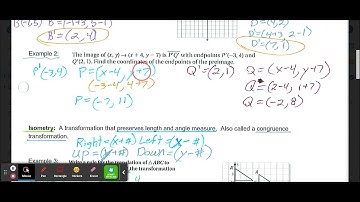 B(-6,5) B'=(-1+3,5-1) D'=(4,2)
B'=(2,4) D'=(4+3,2-1)
D'=(7,1)
Example 2: The Image of (x, y) → (x + 4, y − 7) is P'Q' with endpoints P'(−3, 4) and
Q'(2, 1). Find the coordinates of the endpoints of the preimage.
P'(-3,4) P=(x-4, y+7) Q'=(2,1) Q=(x-4, y+7)
(-3-4, 4+7) Q=(2-4, 1+7)
P=(-7, 11) Q=(-2,8)
Isometry: A transformation that preserves length and angle measure. Also called a congruence
transformation.
Right=(x+#) Left=(x-#)
Up=(y+#) Down=(y-#)
Example 3: Write a rule for the translation of △ABC to
the transformation